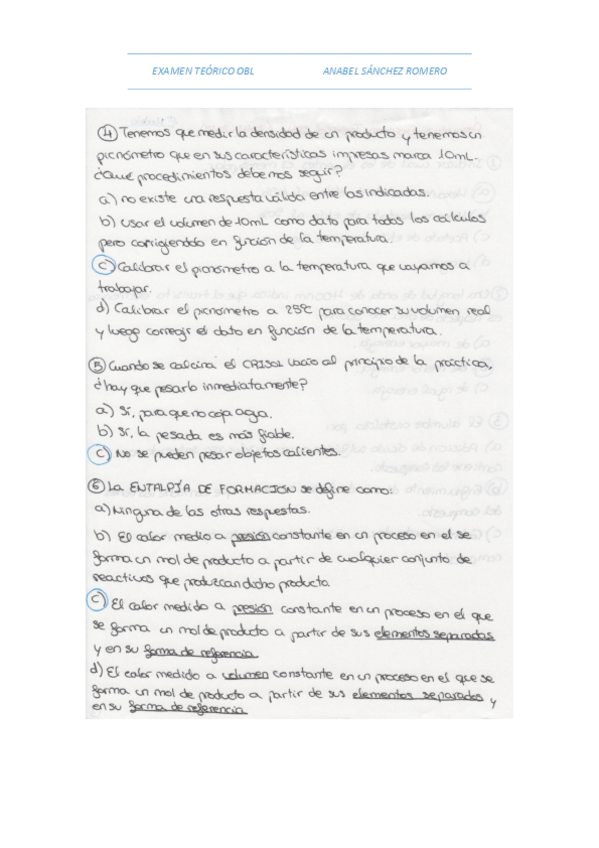 EXAMEN TEÓRICO OBL ANABEL SÁNCHEZ ROMERO
④ Tenemos que medir la densidad de un producto y tenemos un
picnómetro que en sus características impresas marca 10mL.
¿Qué procedimientos debemos seguir?
a) no existe una respuesta válida entre las indicadas.
b) usar el volumen de 10mL como dato para todos los cálculos
pero corrigiendolo en función de la temperatura.
c) Calibrar el picnómetro a la temperatura que vayamos a
trabajar.
d) Calibrar el picnómetro a 25ºC para conocer su volumen real
y luego corregir el dato en función de la temperatura.
⑤ Cuando se calcina el CRISOL vacío al principio de la práctica,
¿hay que pesarlo inmediatamente?
a) Sí, para que no coja agua.
b) Sí, la pesada es más fiable.
c) No se pueden pesar objetos calientes.
⑥ La ENTALPÍA DE FORMACIÓN se define como:
a) Ninguna de las otras respuestas.
b) El calor medio a presión constante en un proceso en el se
forma un mol de producto a partir de cualquier conjunto de
reactivos que produzcan dicho producto
c) El calor medido a presión constante en un proceso en el que
se forma un mol de producto a partir de sus elementos separados
y en su forma de referencia
d) El calor medido a volumen constante en un proceso en el que se
forma un mol de producto a partir de sus elementos separados y
en su forma de referencia